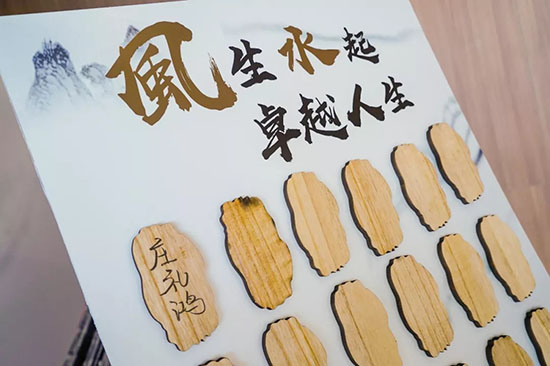 風生水起
卓越人生
庄礼鸿